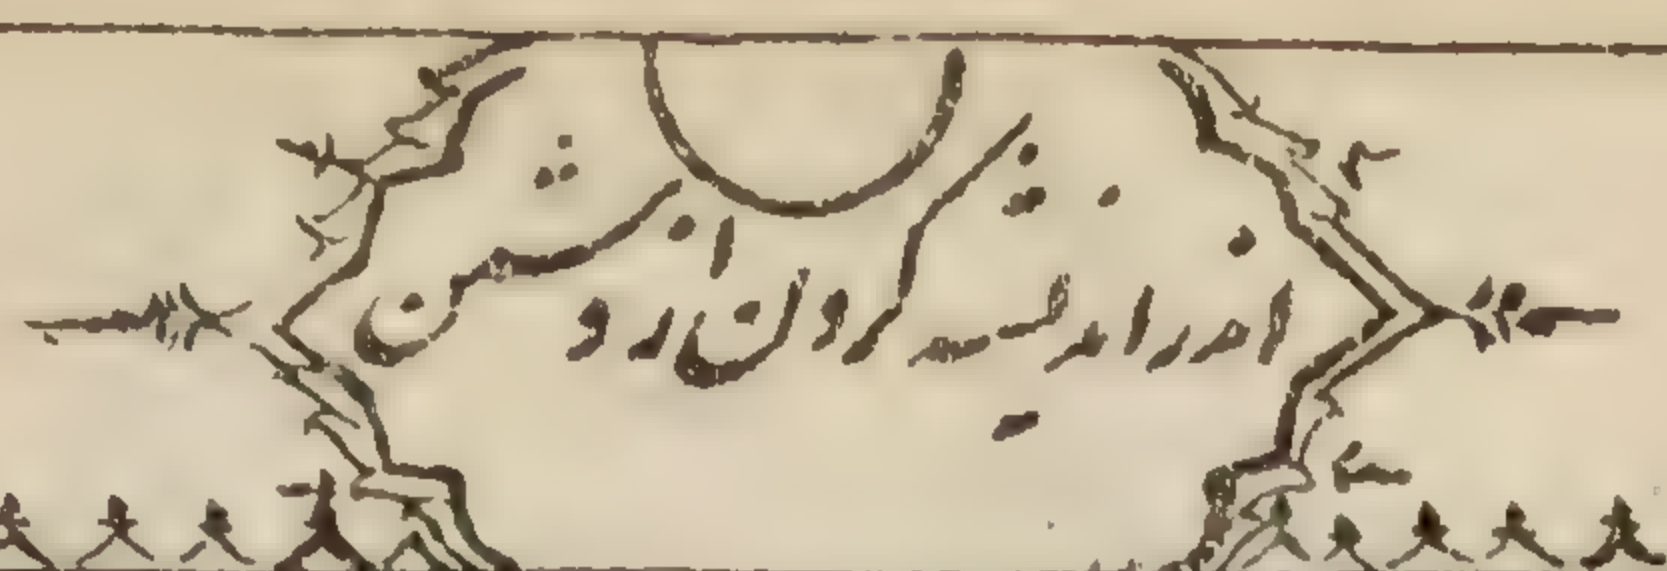 اندر اندیشه کردن از دشمن